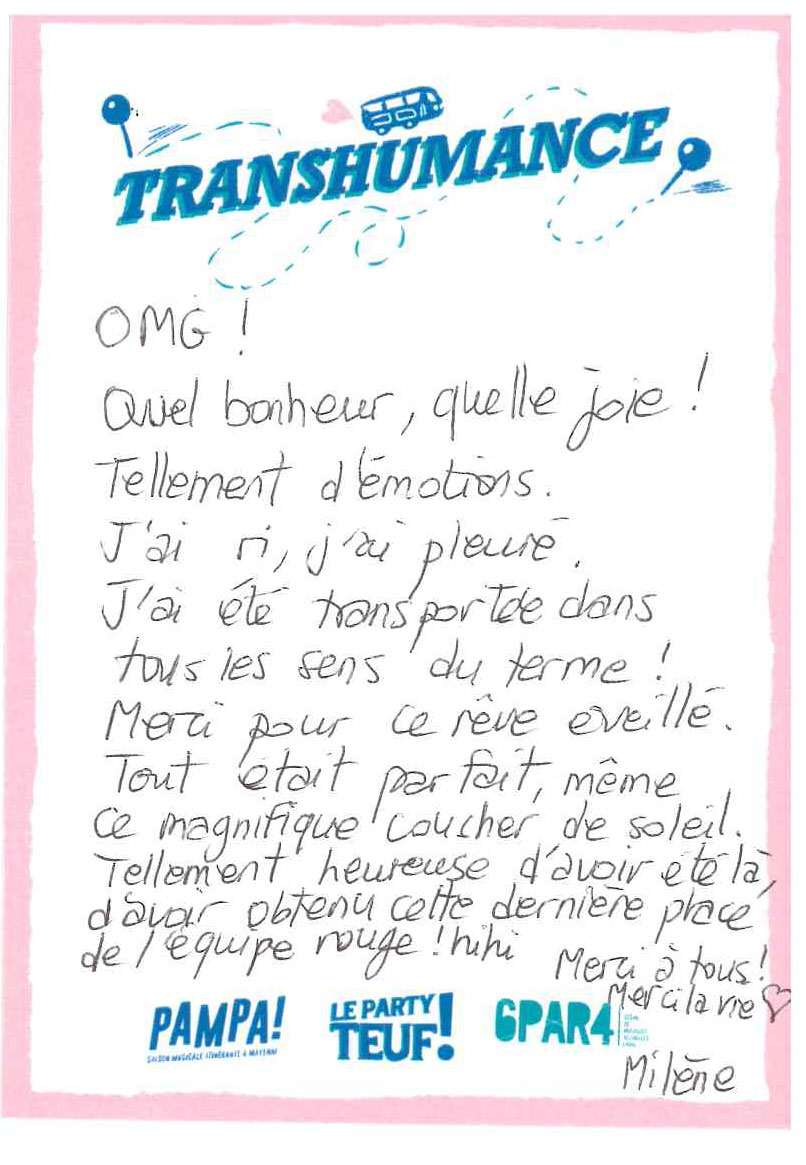 TRANSHUMANCE
OMG !
Quel bonheur, quelle joie !
Tellement d'émotions.
J'ai ri, j'ai pleuré.
J'ai été transportée dans
tous les sens du terme !
Merci pour ce rêve éveillé.
Tout était parfait, même
ce magnifique coucher de soleil.
Tellement heureuse d'avoir été là,
d'avoir obtenu cette dernière place
de l'équipe rouge ! hihi
Merci à tous !
Merci la vie ♡
PAMPA!
SAISON MUSICALE ITINÉRANTE & MAYENNE
LE PARTY
TEUF!
6PAR4
Milène